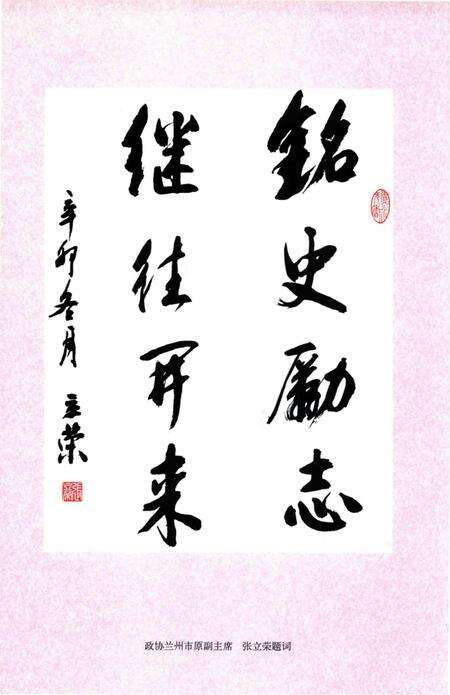 銘史勵志
继往開来
辛卯冬月 立荣
政协兰州市原副主席 张立荣题词